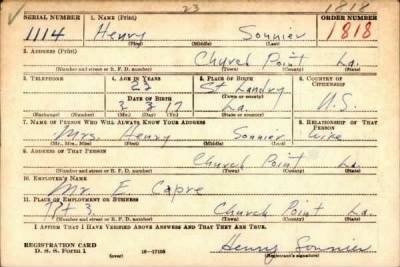 23 1818
SERIAL NUMBER 1. NAME (Print) ORDER NUMBER
1114 Henry Sonnier 1818
(First) (Middle) (Last)
2. ADDRESS (Print)
Church Point La.
(Number and street or R. F. D. number) (Town) (County) (State)
3. TELEPHONE 4. AGE IN YEARS 5. PLACE OF BIRTH 6. COUNTRY OF CITIZENSHIP
23 St Landry
(Town or county)
DATE OF BIRTH
3 17 La. U.S.
(Mo.) (Day) (Yr.) (State or country)
7. NAME OF PERSON WHO WILL ALWAYS KNOW YOUR ADDRESS 8. RELATIONSHIP OF THAT PERSON
Mrs. Henry Sonnier Wife
(Mr., Mrs., Miss) (First) (Middle) (Last)
9. ADDRESS OF THAT PERSON
Church Point La
(Number and street or R. F. D. number) (Town) (County) (State)
10. EMPLOYER'S NAME
Mr. E. Capre
11. PLACE OF EMPLOYMENT OR BUSINESS
Rt 3. Church Point La.
(Number and street or R. F. D. number) (Town) (County) (State)
I AFFIRM THAT I HAVE VERIFIED ABOVE ANSWERS AND THAT THEY ARE TRUE.
REGISTRATION CARD
D. S. S. Form 1 (over) 16—17105 Henry Sonnier
(Registrant's signature)